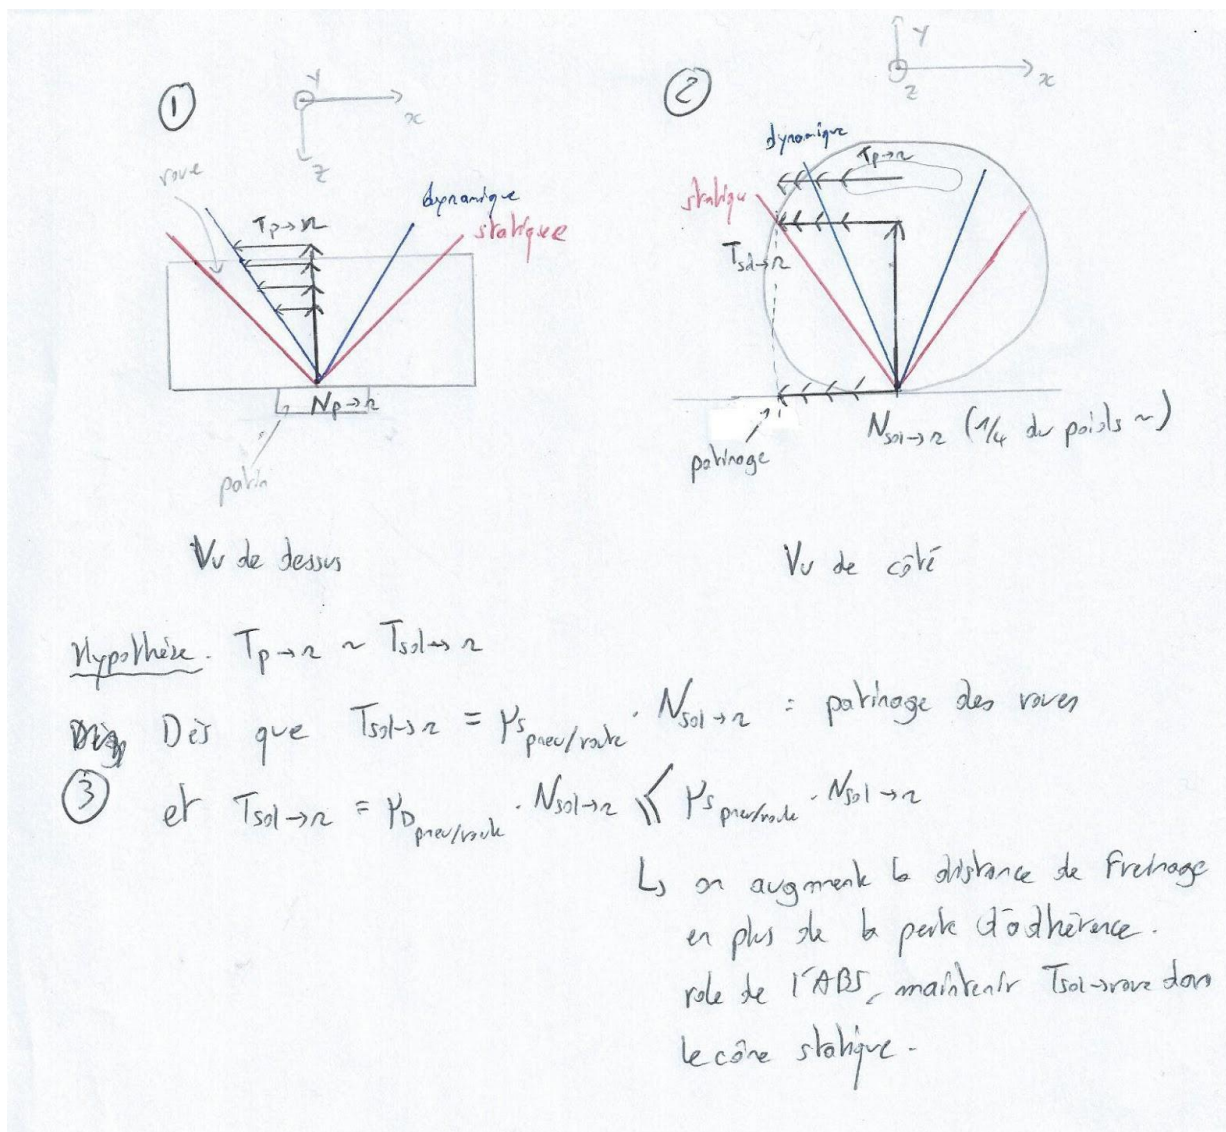 ①
Y
x
Z
roue
Tp→r
dynamique
statique
Np→r
patin
Vu de dessus
②
Y
x
Z
dynamique
Tp→r
statique
Tsol→r
Nsol→r (1/4 du poids ~)
patinage
Vu de côté
Hypothèse. Tp→r ~ Tsol→r
Dès que Tsol→r = μs pneu/route . Nsol→r = patinage des roues
③ et Tsol→r = μD pneu/route . Nsol→r ⩽ μs pneu/route . Nsol→r
↳ on augmente la distance de Freinage
en plus de la perte d'adhérence.
role de l'ABS, maintenir Tsol→roue dans
le cône statique.